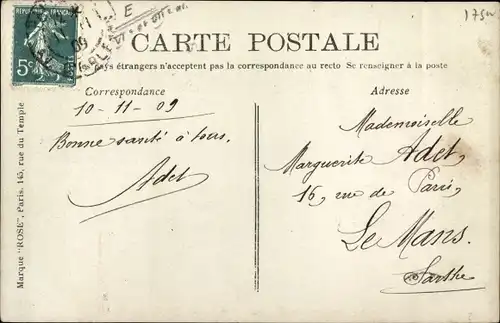 175
E
CARTE POSTALE
pays étrangers n'acceptent pas la correspondance au recto Se renseigner à la poste
Correspondance
10-11-09
Bonne santé à tous,
Adet
Adresse
Mademoiselle
Marguerite Adet,
16, rue de Paris,
Le Mans.
Sarthe
Marque "ROSE", Paris. 145, rue du Temple
5
11
09